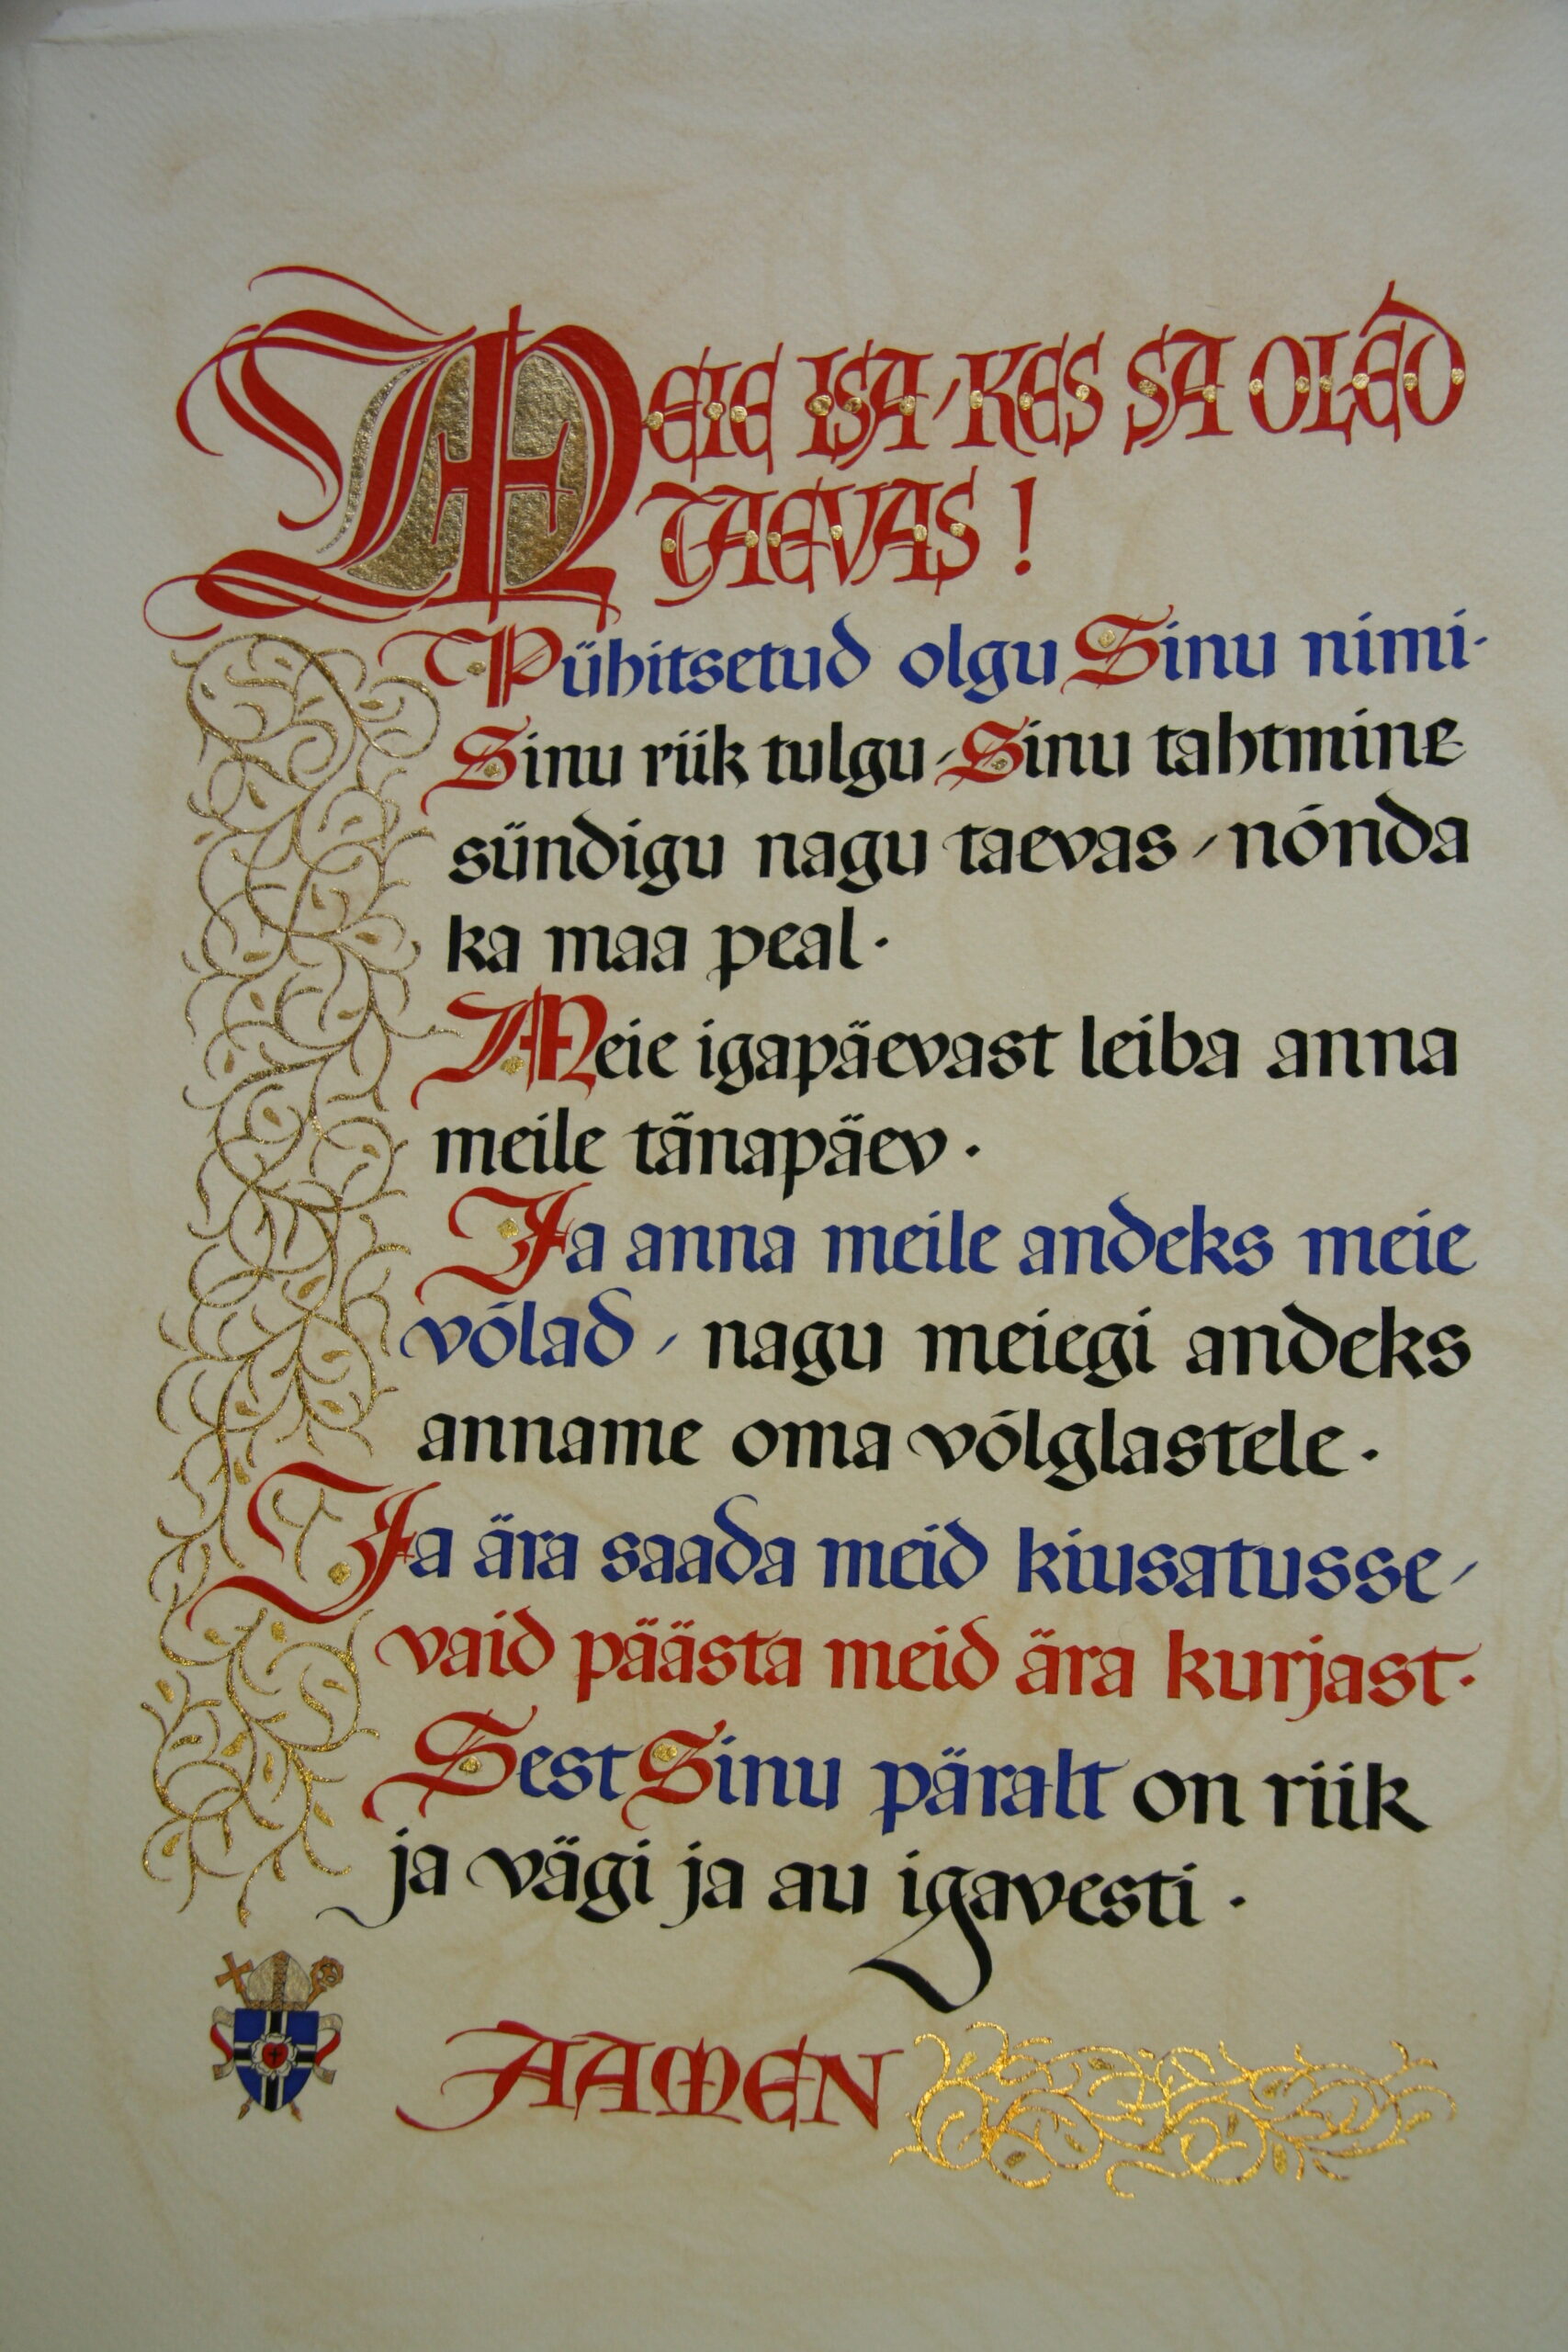 MEIE ISA, KES SA OLED
TAEVAS!
Pühitsetud olgu Sinu nimi.
Sinu riik tulgu, Sinu tahtmine
sündigu nagu taevas, nõnda
ka maa peal.
Meie igapäevast leiba anna
meile tänapäev.
Ja anna meile andeks meie
võlad, nagu meiegi andeks
anname oma võlglastele.
Ja ära saada meid kiusatusse,
vaid päästa meid ära kurjast.
Sest Sinu päralt on riik
ja vägi ja au igavesti.
AAMEN